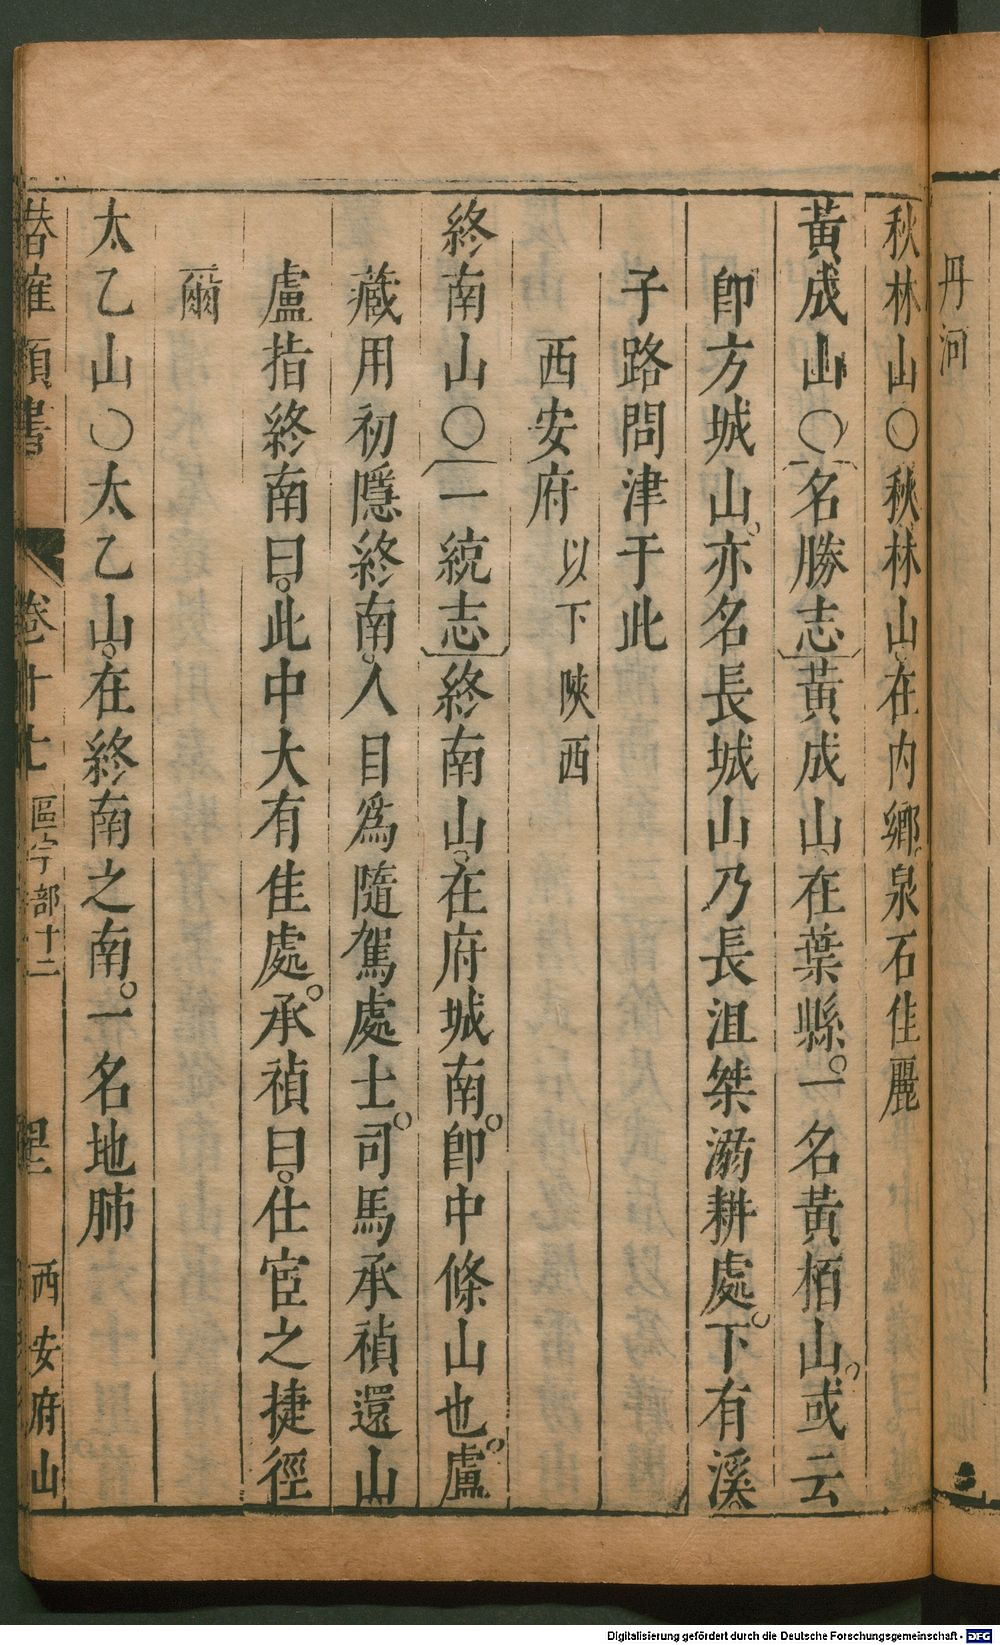 丹河
秋林山〇秋林山。在内鄉。泉石佳麗
黃成山〇〔名勝志〕黃成山。在葉縣。一名黃栢山。或云
卽方城山。亦名長城山乃長沮桀溺耕處。下有溪
子路問津于此
西安府 以下陝西
終南山〇〔一統志〕終南山。在府城南。卽中條山也。盧
藏用初隱終南。人目爲隨駕處士。司馬承禎還山
盧指終南曰。此中大有佳處。承禎曰。仕宦之捷徑
爾
太乙山〇太乙山。在終南之南。一名地肺
類書 卷十七 區宇部十二 西安府山
Digitalisierung gefördert durch die Deutsche Forschungsgemeinschaft - DFG